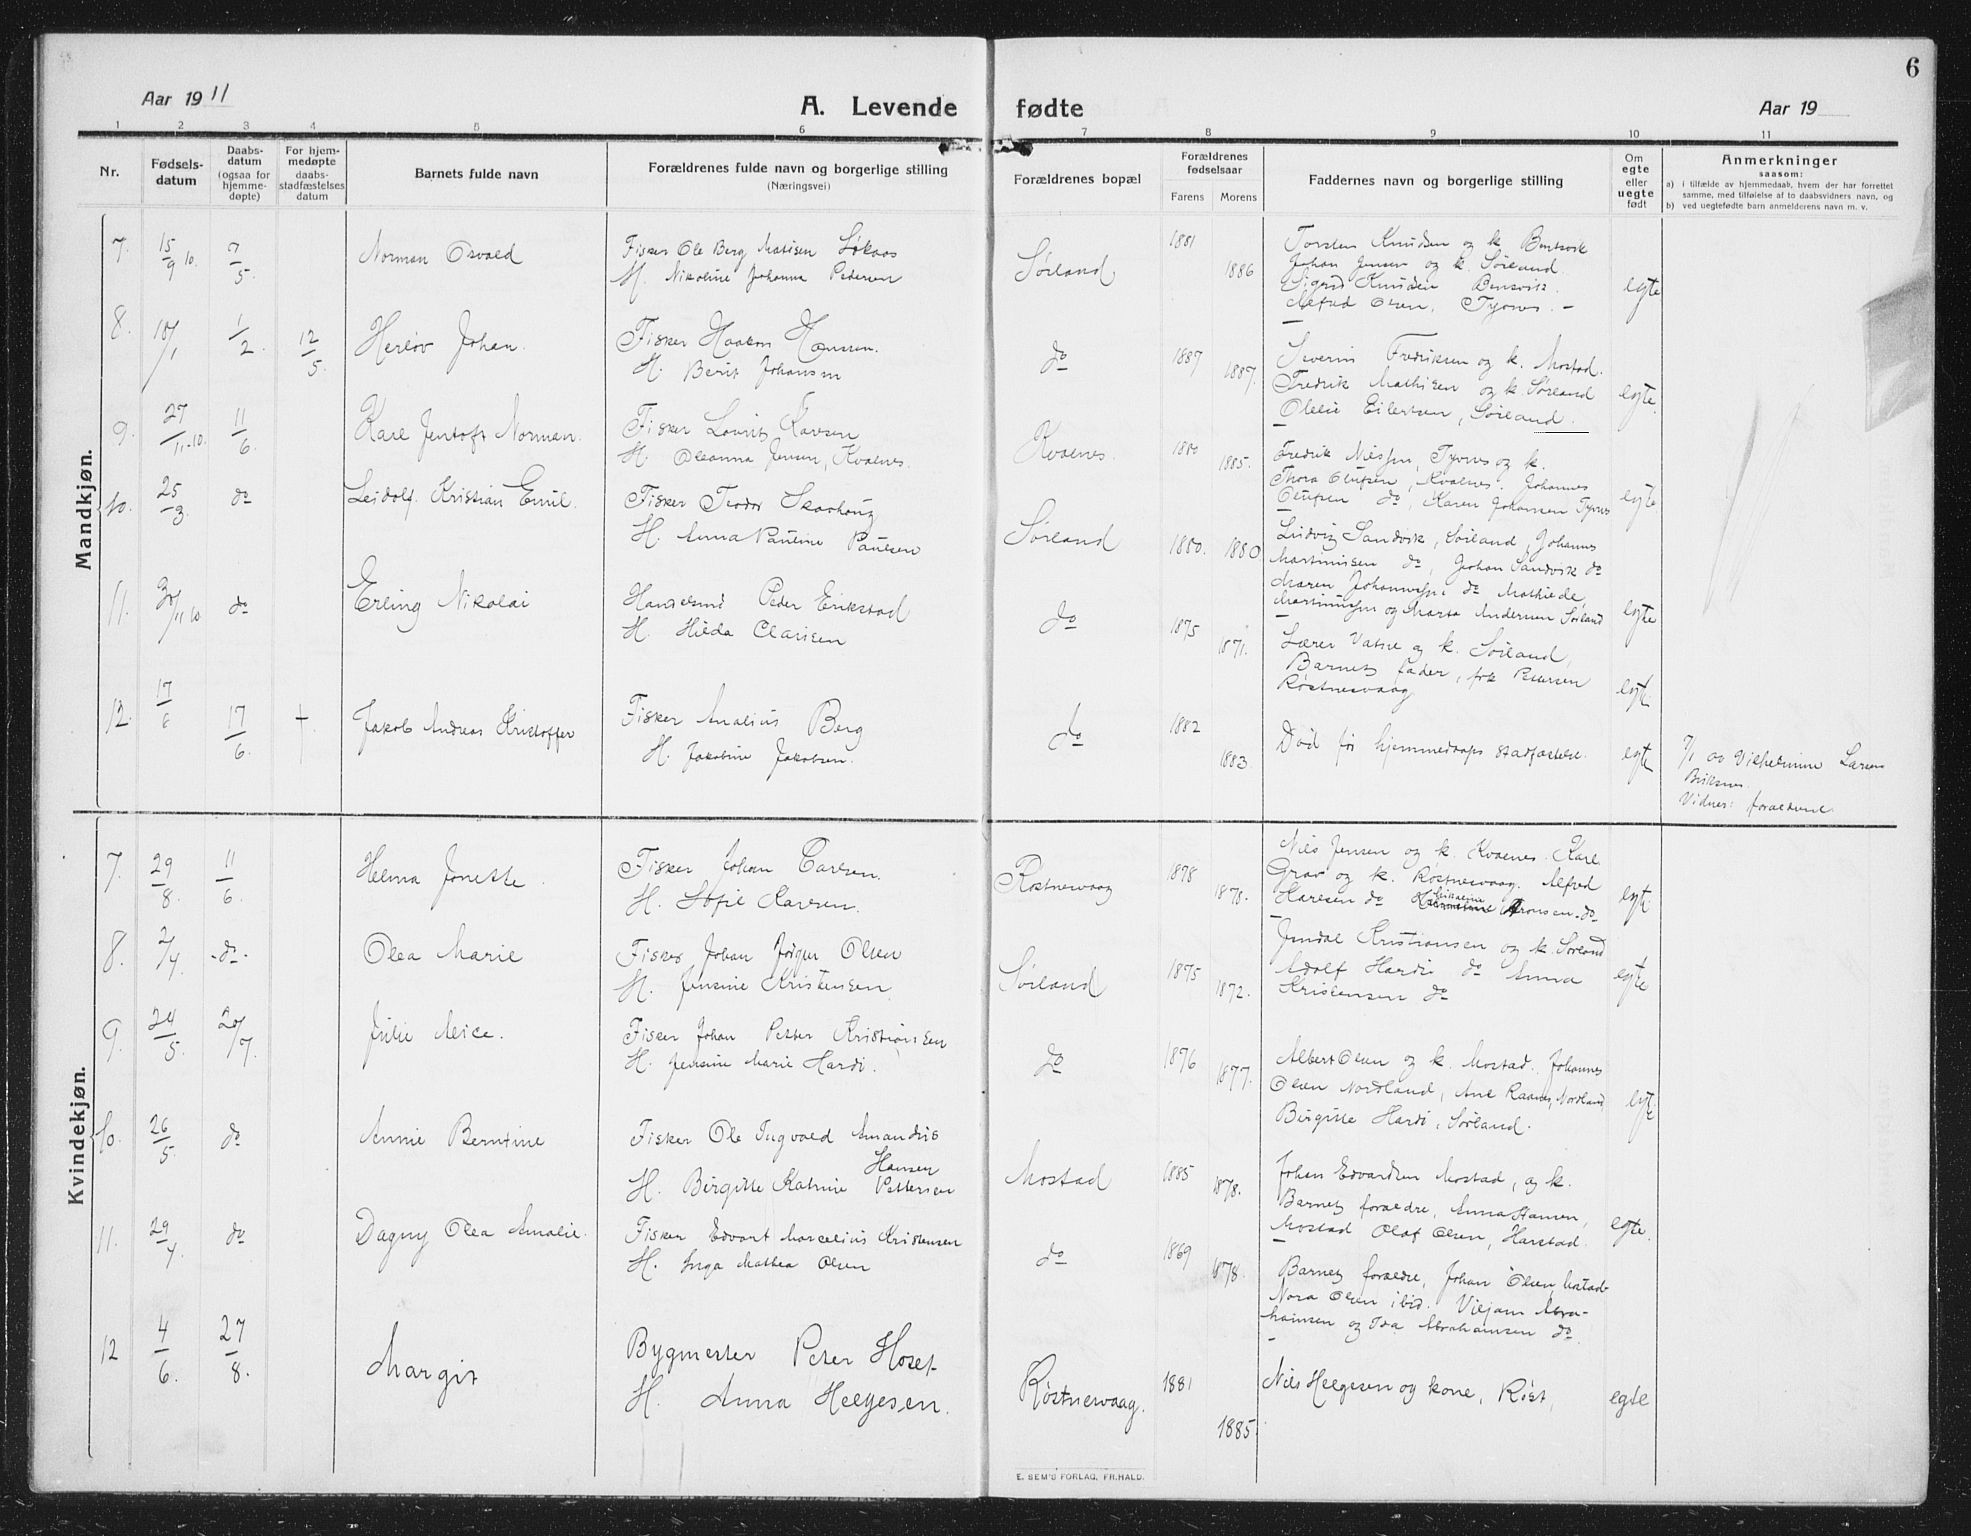 6
Aar 1911
A. Levende fødte
Aar 19
1 2 3 4 5 6 7 8 9 10 11
Nr.
Fødsels-
datum
Daabs-
datum
(ogsaa for
hjemme-
døpte)
For hjem-
medøpte
daabs-
stadfæstelses
datum
Barnets fulde navn
Forældrenes fulde navn og borgerlige stilling
(Næringsvei)
Forældrenes bopæl
Forældrenes
fødselsaar
Farens Morens
Faddernes navn og borgerlige stilling
Om
egte
eller
uegte
født
Anmerkninger
saasom:
a) i tilfælde av hjemmedaab, hvem der har forrettet
samme, med tilføielse af to daabsvidners navn, og
b) ved uegtefødte barn anmelderens navn m. v.
Mandkjøn.
7. 15/9 10. 7/5. Norman Osvald
Fisker Ole Berg Matisen
H. Nikoline Johanna Pedersen
Sørland 1881 1886
Torsten Knudsen og k.
Johan Jensen og k. Sørland.
Sigrid Knudsen
Alfred Olsen, Tyvnes. –
egte
8. 10/1 1/2. 12/5. Herlov Johan.
Fisker Haakon Hansen.
H. Berit Johansen
do 1887 1887.
Severin Fredriksen og k. Mostad.
Fredrik Mathisen og k. Sørland
Eilertsen, Sørland.
egte.
9. 27/11-10. 11/6. Karl Jentoft Norman.
Fisker Lavrits Larsen
H. Oleanna Jensen, Kvalnes.
Kvalnes. 1880 1885.
Fredrik Nilssen, Tyvnes og k.
Thora Olufsen, Kvalnes. Johannes
Olufsen do, Karen Johansen Tyvnes
egte
10. 25/3. do Leidolf Kristian Emil.
Fisker Teodor Skaahaug
H. Anna Pauline Paulsen
Sørland 1880. 1880
Ludvig Sandvik, Sørland, Johannes
Martinusen do, Johan Sandvik do
Maren Johannessen do Mathilde
Martinussen og Marta Andersen Sørland
egte
11. 30/11 10 do Erling Nikolai
Handelsmd Peder Erikstad
H. Hilda Clausen
do 1875 1871.
Lærer Vatne og k. Sørland,
Barnets fader, frk Pettersen
Røstnesvaag
egte.
12. 17/6 17/6. + Jakob Andreas Kristoffer
Fisker Analius Berg
H. Jakobine Jakobsen.
do 1882 1883.
Død før hjemmedaaps stadfæstelse.
egte
7/1 av Vilhelmine Larsen
Vidner: forældrene.
Kvindekjøn.
7. 29/8. 11/6. Helma Jonette.
Fisker Johan Larsen.
H. Sofie Larsen.
Røstnesvaag 1878 1878.
Nils Jensen og k. Kvalnes. Karl
Grav og k. Røstnesvaag. Alfred
Karlsen do Aronsen do
egte.
8. 2/4. -do- Olea Marie
Fisker Johan Jørgen Olsen
H. Jensine Kristensen
Sørland 1875 1872.
Jendal Kristiansen og k. Sørland
Adolf Hardi do Anna
Kristensen do
egte
9. 24/5. 20/7. Julie Alice.
Fisker Johan Petter Kristiansen
H. Jensine Marie Hardi.
do 1876 1877.
Albert Olsen og k. Mostad. Johannes
Olsen Nordland, Ane Raanes, Nordland
Birgitte Hardi, Sørland.
egte
10. 26/5. do Annie Berntine
Fisker Ole Ingvald Amandus
Hansen
H. Birgitte Katrine Pettersen
Mostad 1885 1878.
Johan Edvardsen Mostad, og k.
Barnets forældre, Anna Hansen,
Mostad Olaf Olsen, Harstad.
egte.
11. 29/4. do Dagny Olea Amalie.
Fisker Edvart Marcelius Kristensen
H. Inga Mathea Olsen
do 1869 1878.
Barnets forældre, Johan Olsen, Mostad
Nora Olsen ibid. Viljam Abra-
hamsen og Ida Abrahamsen do.
12 4/6. 27/8. Margit
Bygmester Peter Hosef.
H. Anna Helgesen.
Røstnesvaag. 1881 1885.
Nils Helgesen og kone, Røst,
egte
E. SEM'S FORLAG, FR.HALD.